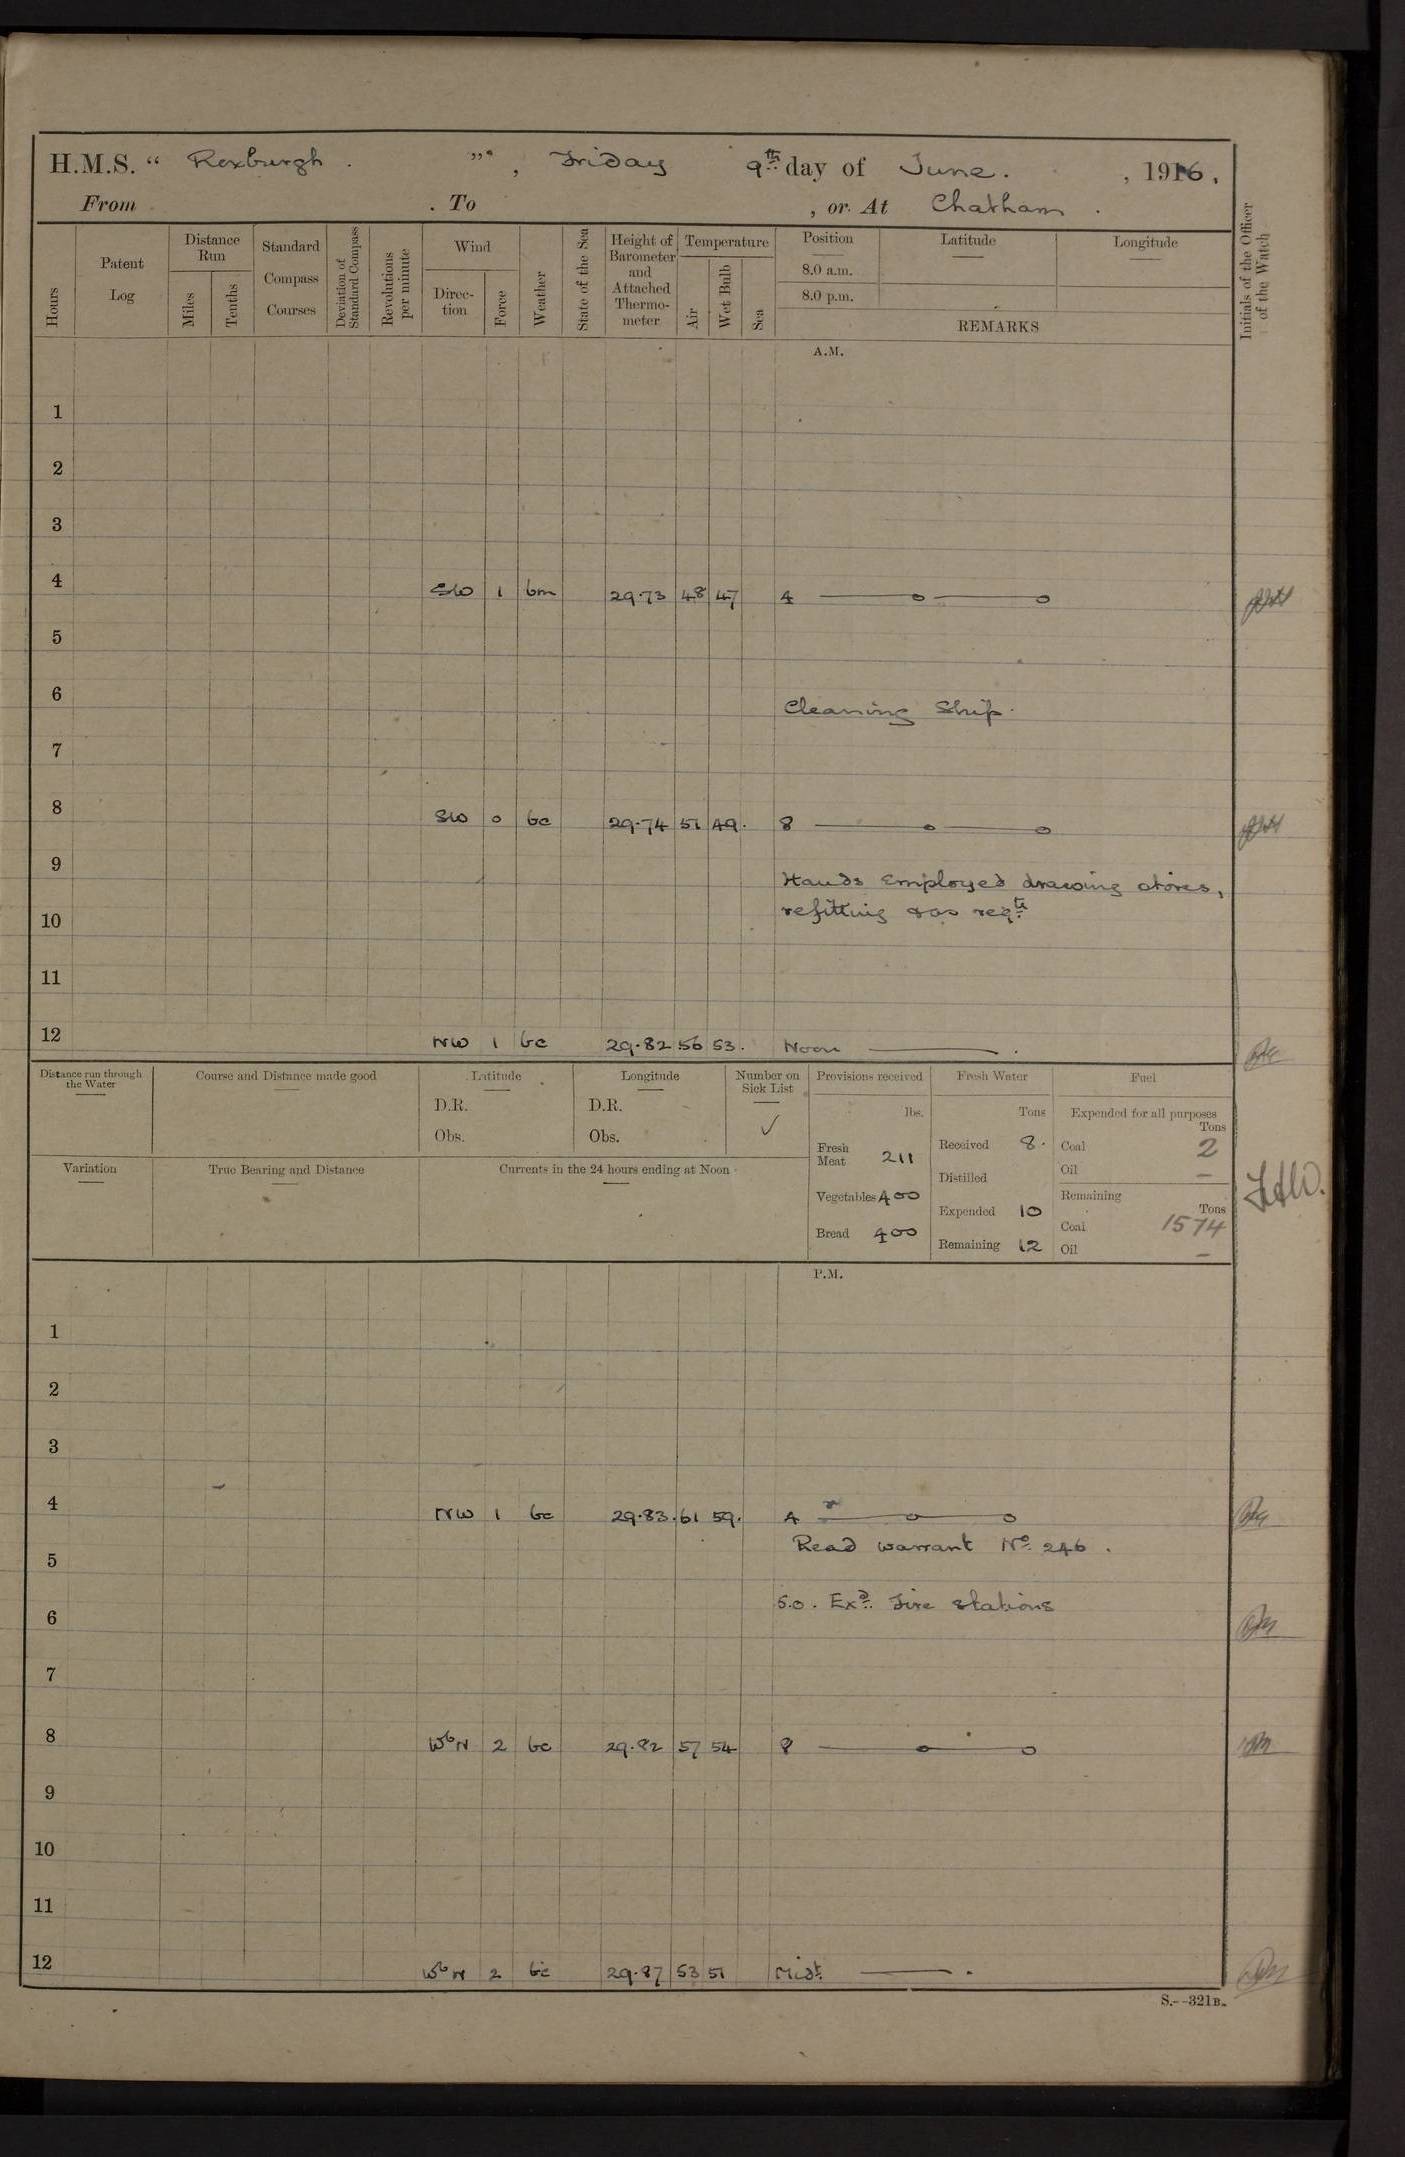 H.M.S. “ Roxburgh . ”, Friday 9th day of June. , 1916.
From . To , or At Chatham .
Hours
Patent Log
Distance Run
Miles
Tenths
Standard Compass Courses
Deviation of Standard Compass
Revolutions per minute
Wind
Direc-tion
Force
Weather
State of the Sea
Height of Barometer and Attached Thermo-meter
Temperature
Air
Wet Bulb
Sea
Position
8.0 a.m.
8.0 p.m.
Latitude
Longitude
REMARKS
Initials of the Officer of the Watch
A.M.
1
2
3
4 SW 1 bm 29.73 48 47 4
5
6 Cleaning Ship.
7
8 SW 0 bc 29.74 51 49. 8
9 Hands employed drawing stores,
10 refitting & as reqte
11
12 NW 1 bc 29.82 56 53. Noon
Distance run through the Water
Course and Distance made good
Latitude
D.R.
Obs.
Longitude
D.R.
Obs.
Number on Sick List
✓
Provisions received
lbs.
Fresh Meat 211
Vegetables 400
Bread 400
Fresh Water
Tons
Received 8.
Distilled
Expended 10
Remaining 12
Fuel
Expended for all purposes
Tons
Coal 2
Oil –
Remaining
Tons
Coal 1574
Oil –
Variation
True Bearing and Distance
Currents in the 24 hours ending at Noon
P.M.
1
2
3
4 NW 1 bc 29.83. 61 59. 4
Read warrant No. 246 .
5
5.0. Exd. Fire stations
6
7
8 WbN 2 bc 29.82 57 54 8
9
10
11
12 WbN 2 bc 29.87 53 51 Midt.
S.--321B.